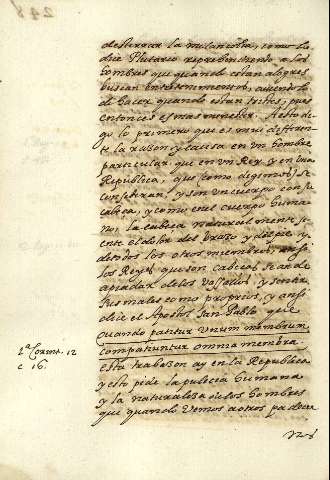 desterrar la melancolia, como lo
dice Plutarco reprehendiendo a los
hombres que quando estan alegres
buscan entretenimientos, aviendolo
de hacer quando estan tristes, pues
entonces es mas menester. A esto di
go lo primero que es mui differen
te la razon y causa en un hombre
particular que en un Rey y en una
Republica, que (como digimos) se
consideran, y son un cuerpo con su
cabeza, y como en el cuerpo huma
no, la cabeza naturalmente si
ente el dolor del brazo y del pie y
de todos los otros miembros, ansi
los Reyes que son cabezas se an de
apiadar de los vasallos, y sentir
sus males como proprios, y ansi
dice el Apostol San Pablo que
quando patitur unum membrum
compatiuntur omnia membra
esta trabazon ay en la Republica
y esto pide la policia humana
y la naturaleza de los hombres
que quando vemos a otros padecer
1ª Corint. 12
c 16.
248